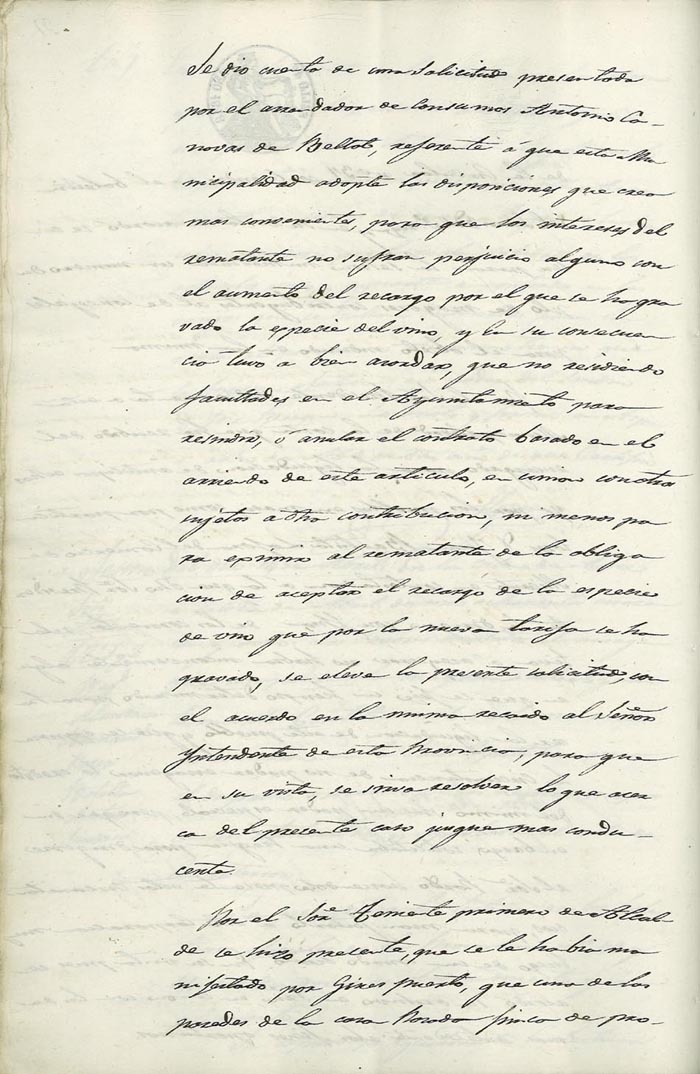 Se dio cuenta de una solicitud presentada
por el arrendador de Consumos Antonio Ca-
novas de Beltot, referente á que esta Mu
nicipalidad adopte las disposiciones que crea
mas conveniente, para que los intereses del
rematante no sufran perjuicio alguno con
el aumento del recargo por el que se ha gra
vado la especie del vino, y en su consecuen
cia tuvo a bien acordar, que no residiendo
facultades en el Ayuntamiento para
resindir, ó anular el contrato basado en el
arriendo de este articulo, en union con otros
sujetos a dha contribucion, ni menos pa
ra eximir al rematante de la obliga
cion de aceptar el recargo de la especie
de vino que por la nueva tarifa se ha
gravado, se eleve la presente solicitud, con
el acuerdo en la misma recaido al Señor
Yntendente de esta Provincia, para que
en su vista, se sirva resolver lo que acer
ca del presente caso jusgue mas condu-
cente.
Por el Sor. Teniete primero de Alcal-
de se hizo presente, que se le habia ma
nifestado por Gines Puerto, que una de las
paredes de la casa Posada finca de pro-